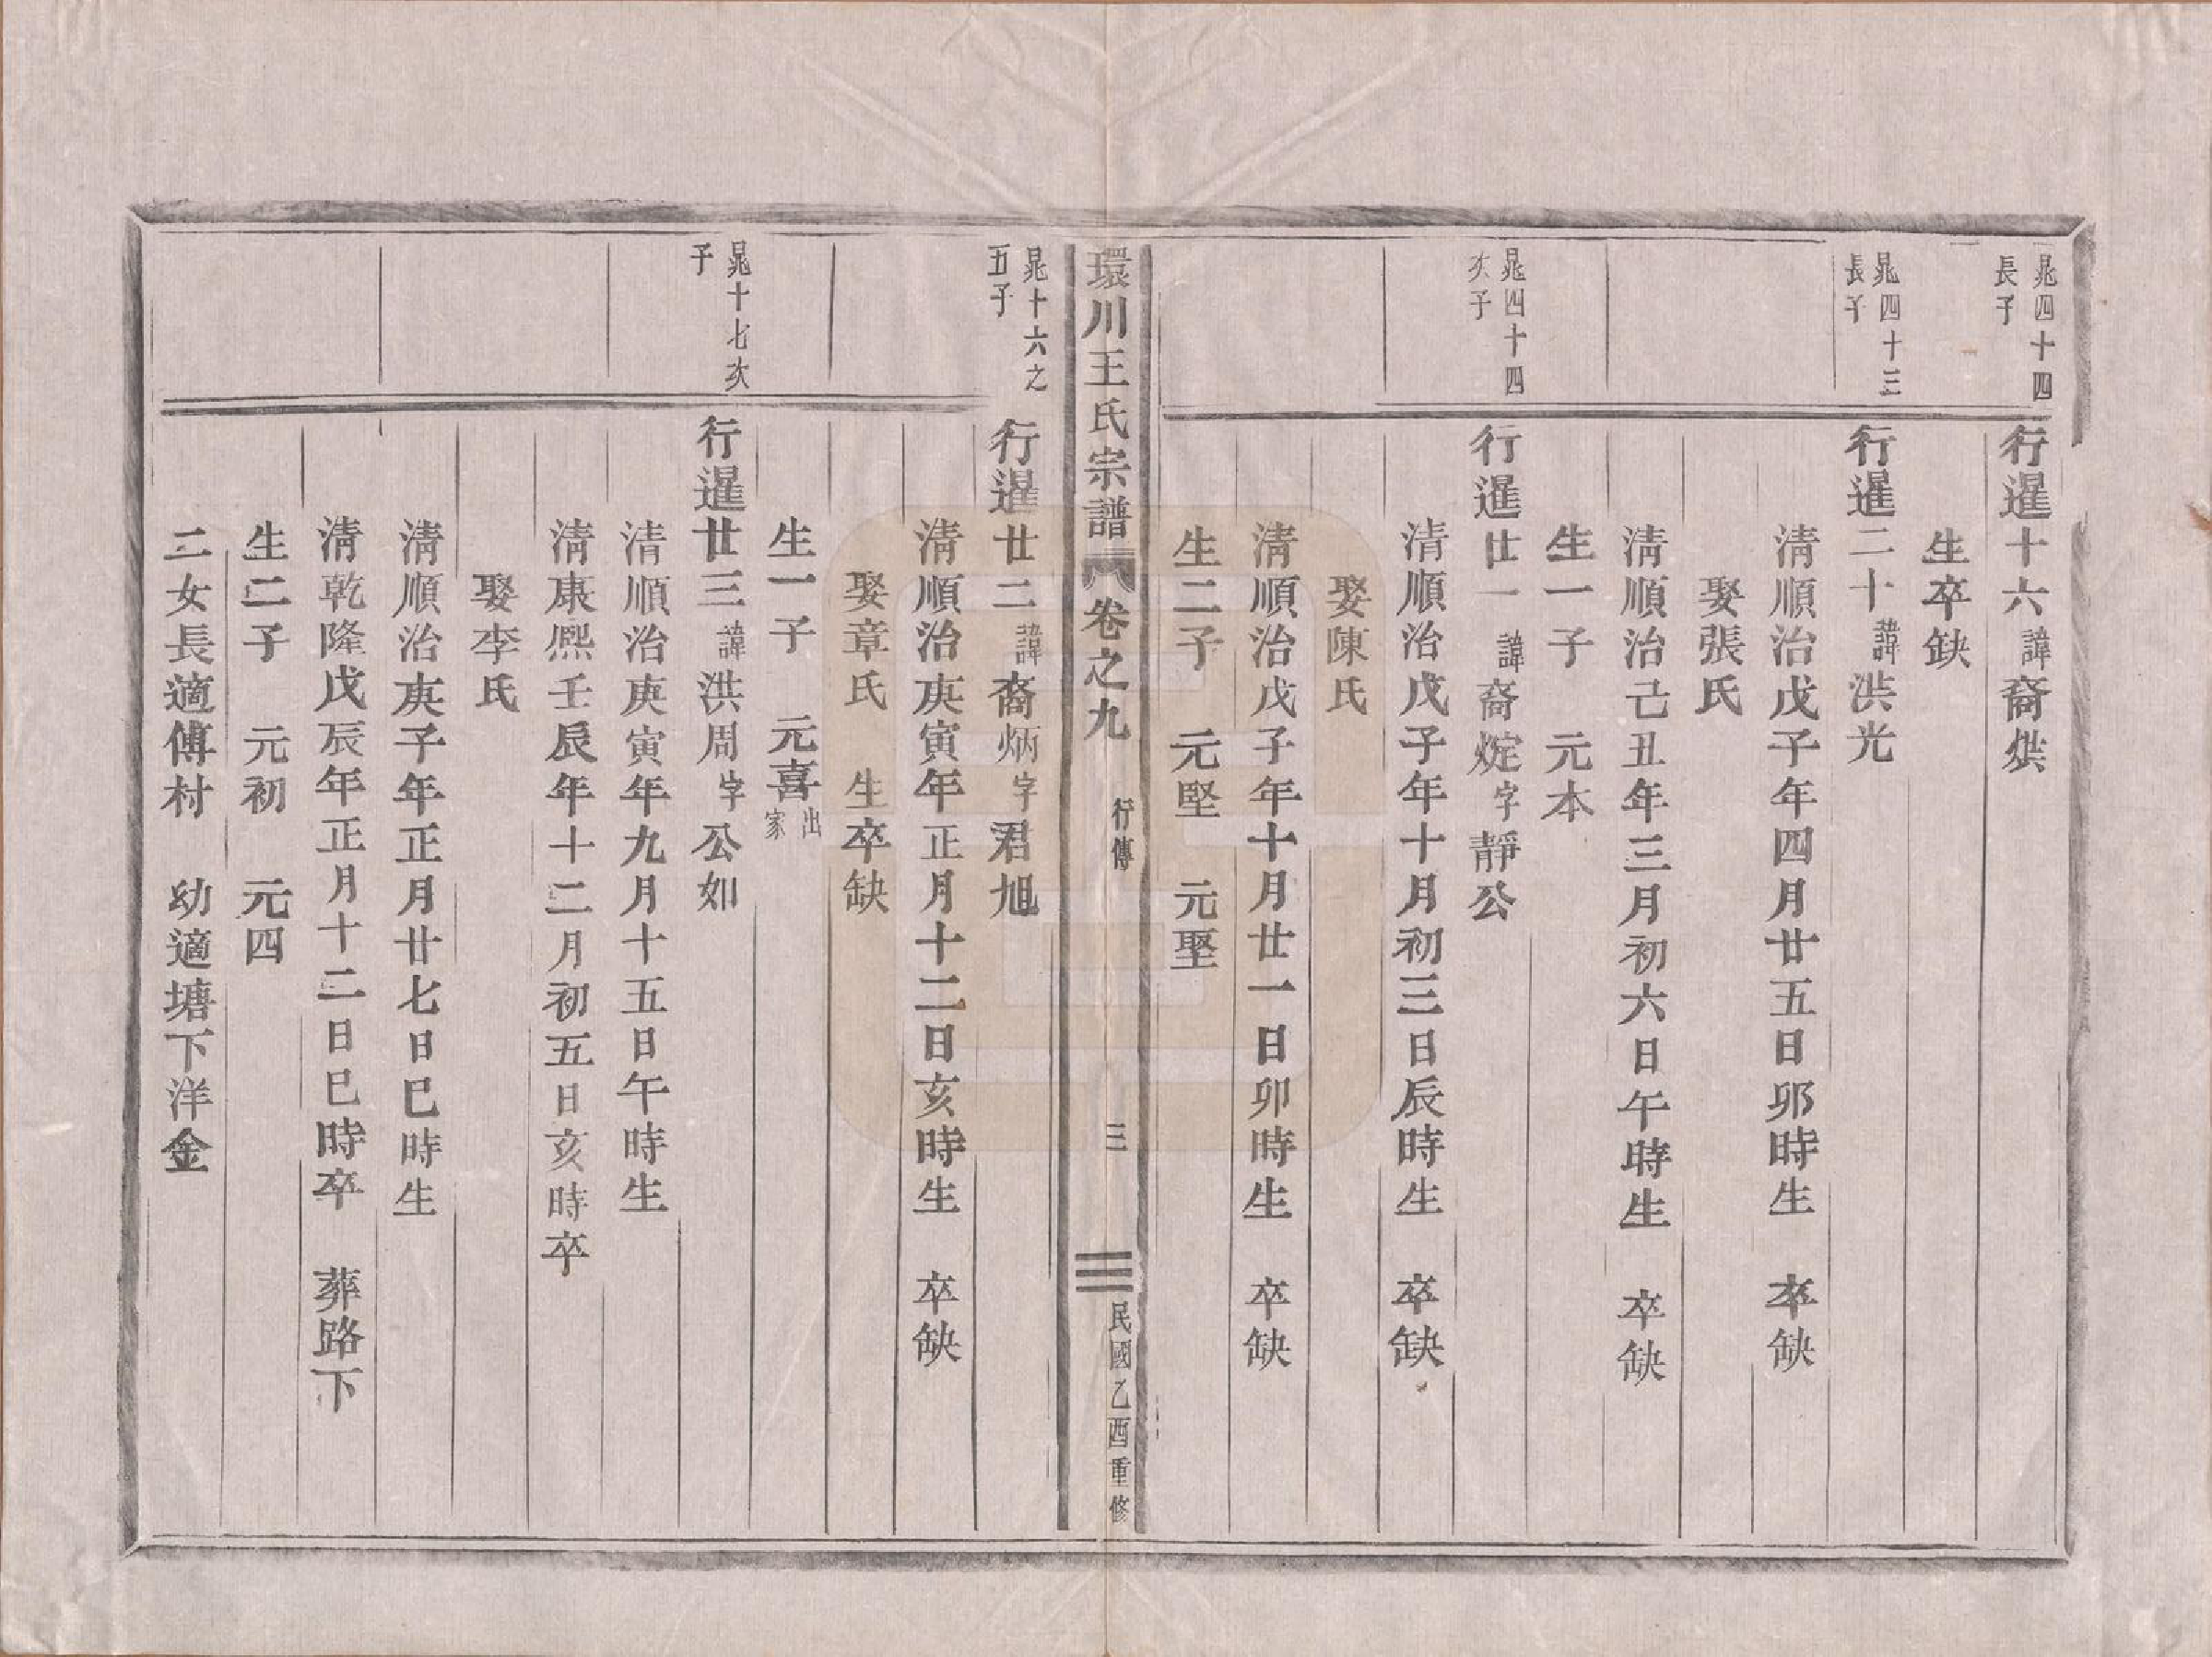 晁四十四
長子
行暹十六諱裔烘
生卒缺
晁四十三
長子
行暹二十諱洪光
清順治戊子年四月廿五日卯時生　卒缺
娶張氏
清順治己丑年三月初六日午時生　卒缺
生一子　元本
晁四十四
次子
行暹廿一諱裔㷍字靜公
清順治戊子年十月初三日辰時生　卒缺
娶陳氏
清順治戊子年十月廿一日卯時生　卒缺
生二子　元堅　元壑
環川王氏宗譜　卷之九　行傳　三　民國乙酉重修
晁十六之
五子
行暹廿二諱裔炳字君旭
清順治庚寅年正月十二日亥時生　卒缺
娶章氏　生卒缺
生一子　元喜出家
晁十七次
子
行暹廿三諱洪周字公如
清順治庚寅年九月十五日午時生
清康熙壬辰年十二月初五日亥時卒
娶李氏
清順治庚子年正月廿七日巳時生
清乾隆戊辰年正月十二日巳時卒　葬路下
生二子　元初　元四
二女長適傅村　幼適塘下洋金